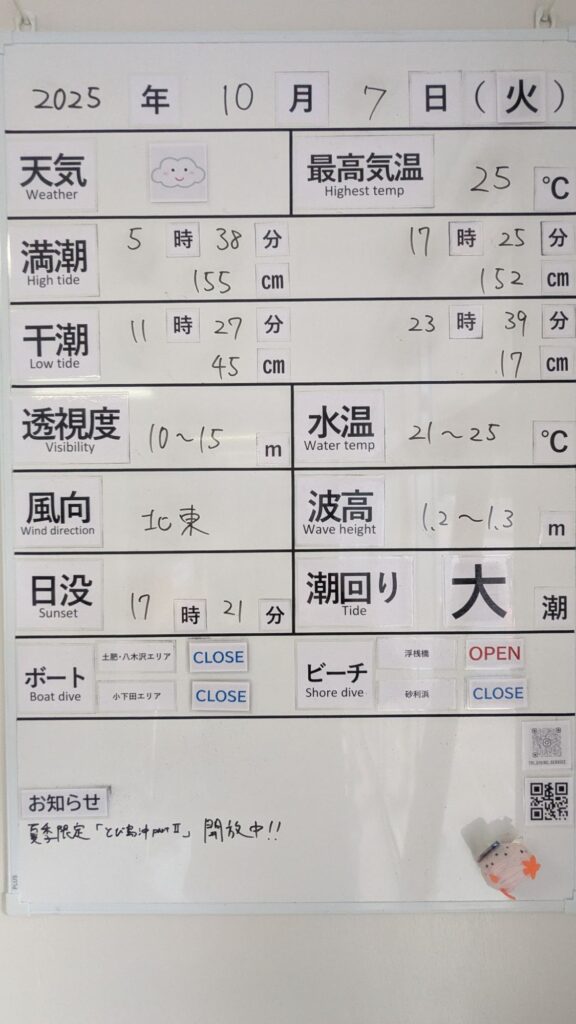 2025 年 10 月 7 日 (火)
天気
Weather
最高気温
Highest temp
25 ℃
満潮
High tide
5 時 38 分
155 cm
17 時 25 分
152 cm
干潮
Low tide
11 時 27 分
45 cm
23 時 39 分
17 cm
透視度
Visibility
10〜15 m
水温
Water temp
21〜25 ℃
風向
Wind direction
北東
波高
Wave height
1.2〜1.3 m
日没
Sunset
17 時 21 分
潮回り
Tide
大 潮
ボート
Boat dive
土肥・八木沢エリア CLOSE
小下田エリア CLOSE
ビーチ
Shore dive
浮桟橋 OPEN
砂利浜 CLOSE
お知らせ
夏季限定「とび島沖 part Ⅱ」開放中!!
PLUS